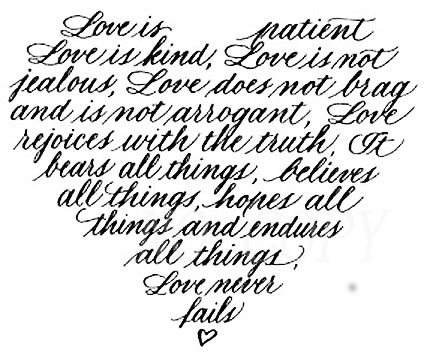 Love is patient
Love is kind, Love is not
jealous, Love does not brag
and is not arrogant, Love
rejoices with the truth, It
bears all things, believes
all things, hopes all
things and endures
all things,
Love never
fails